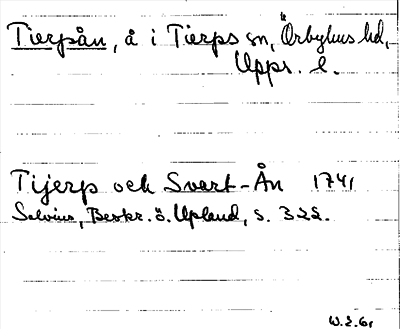 Tierpsån, å i Tierps sn, Örbyhus hd,
Upps. l.
Tijerp och Svart-Ån 1741
Salvius, Beskr. ö. Upland, s. 322.
W.E.61